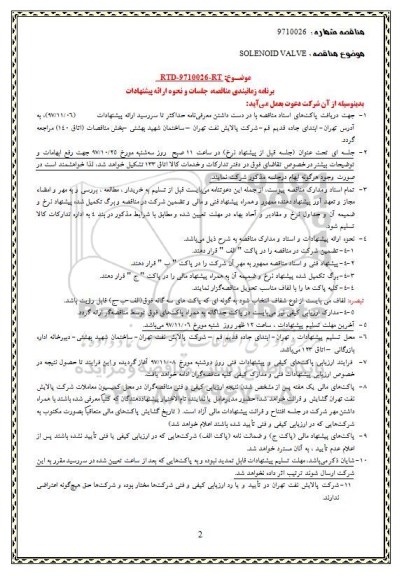 مناقصه شماره : 9710026
موضوع مناقصه : SOLENOID VALVE
موضوع: RTD-9710026-RT
برنامه زمانبندی مناقصه، جلسات و نحوه ارائه پیشنهادات
بدینوسیله از آن شرکت دعوت بعمل می‌آید:
۱- جهت دریافت پاکت‌های اسناد مناقصه با در دست داشتن معرفی‌نامه حداکثر تا سررسید ارائه پیشنهادات (۹۷/۱۱/۰۶)، به
آدرس تهران- ابتدای جاده قدیم قم- شرکت پالایش نفت تهران – ساختمان شهید بهشتی -بخش مناقصات (اتاق ۱۴۰) مراجعه
گردد.
۲- جلسه ای تحت عنوان (جلسه قبل از پیشنهاد نرخ) در ساعت ۱۱ صبح روز سه‌شنبه مورخ ۹۷/۱۰/۲۵ جهت رفع ابهامات و
توضیحات بیشتر درخصوص تقاضای فوق در دفتر تدارکات و خدمات کالا اتاق ۱۲۳ تشکیل خواهد شد، لذا خواهشمند است در
صورت وجود هرگونه ابهام درجلسه مذکور شرکت نمایند.
۳- تمام اسناد و مدارک مناقصه پیوست، از جمله این دعوتنامه می‌بایست قبل از تسلیم به خریدار ، مطالعه ، بررسی و به مهر و امضاء
مجاز و تعهد آور پیشنهاد دهنده ممهور و همراه پیشنهاد فنی و مالی و تضمین شرکت در مناقصه و برگ تکمیل شده پیشنهاد نرخ و
ضمیمه آن و جداول نرخ و مقادیر و آحاد بهاء در مهلت تعیین شده و مطابق با شرایط مذکور در بند ۴ به اداره تدارکات کالا
تسلیم شود.
۴- نحوه ارائه پیشنهادات و اسناد و مدارک مناقصه به شرح ذیل می‌باشد.
۴-۱- تضمین شرکت در مناقصه را در پاکت " الف " قرار دهند.
۴-۲- پیشنهاد فنی و اسناد مناقصه ممهور به مهر آن شرکت را در پاکت " ب " قرار دهند.
۴-۳- برگ تکمیل شده پیشنهاد نرخ و ضمیمه آن به همراه پیشنهاد مالی را در پاکت " ج " قرار دهند.
۴-۴- کلیه پاکت ها را با لفاف مناسب تحویل مناقصه‌گزار نمایند.
تبصره: لفاف می بایست از نوع شفاف انتخاب شود به گونه ای که پاکت های سه گانه فوق(الف-ب-ج) قابل رؤیت باشد.
۴-۵- مدارک ارزیابی کیفی نیز می‌بایست در پاکت جداگانه به همراه پاکت‌های فوق توسط مناقصه‌گر ارائه گردد.
۵- آخرین مهلت تسلیم پیشنهادات ، ساعت ۱۲ ظهر روز شنبه مورخ ۹۷/۱۱/۰۶ می‌باشد.
۶- محل تسلیم پیشنهادات ، تهران- ابتدای جاده قدیم قم – شرکت پالایش نفت تهران- ساختمان شهید بهشتی- دبیرخانه اداره
بازرگانی –اتاق ۱۲۳ می‌باشد.
۷- فرایند ارزیابی پاکت‌های کیفی و پیشنهادات فنی روز دوشنبه مورخ ۹۷/۱۱/۰۸ آغاز گردیده و این فرایند تا حصول نتیجه در
خصوص ارزیابی پیشنهادات فنی و مدارک کیفی کلیه مناقصه‌گران ادامه خواهد یافت.
۸- پاکت‌های مالی یک هفته پس از مشخص شدن نتیجه ارزیابی کیفی و فنی مناقصه‌گران در محل کمیسیون معاملات شرکت پالایش
نفت تهران گشایش و قرائت خواهد شد( حضور مدیرعامل یا نماینده تام‌الاختیار پیشنهاددهندگان که کتباً معرفی شده باشند با همراه
داشتن مهر شرکت در جلسه افتتاح و قرائت پیشنهادات مالی آزاد است. ( تاریخ گشایش پاکت‌های مالی متعاقباً بصورت مکتوب به
شرکت‌هایی که در ارزیابی کیفی و فنی تأیید شده باشند اعلام خواهد شد)
۹- پاکت‌های پیشنهاد مالی (پاکت ج) و ضمانت نامه (پاکت الف) شرکت‌هایی که در ارزیابی کیفی یا فنی تأیید نشده باشند پس از
اعلام عدم تأیید ، به آنان مسترد خواهد شد.
۱۰- شایان ذکر می‌باشد، مهلت تسلیم پیشنهادات قابل تمدید نبوده و به پاکت‌هایی که بعد از ساعت تعیین شده در سررسید مقرر به این
شرکت ارسال شوند ترتیب اثر داده نخواهد شد.
۱۱- شرکت پالایش نفت تهران در تأیید و یا رد ارزیابی کیفی و فنی شرکت‌ها مختار بوده و شرکت‌ها حق هیچ‌گونه اعتراضی
ندارند.
2